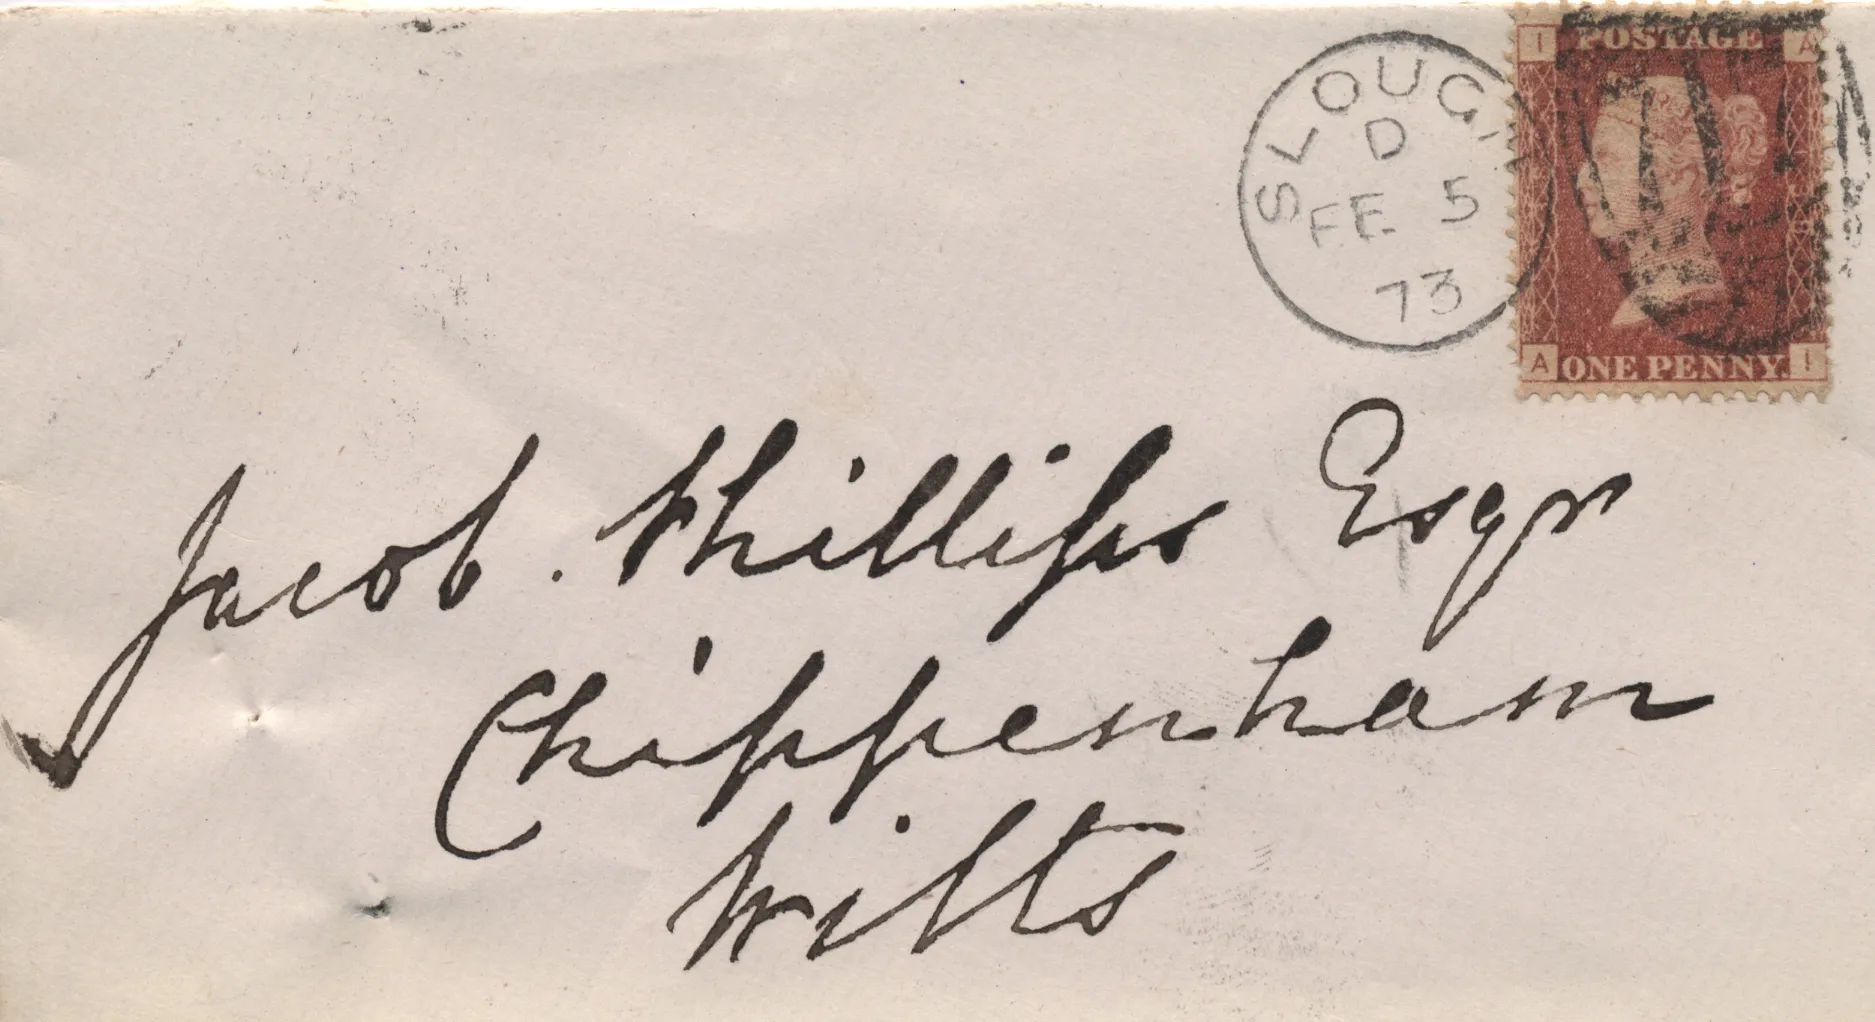 SLOUGH
D
FE 5
73
I POSTAGE A
A ONE PENNY. I
Jacob. Phillips Esqr
Chippenham
Wilts